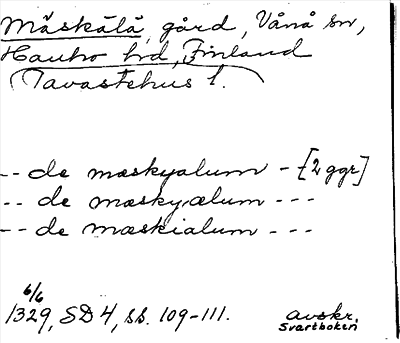 Mäskälä, gård, Vånå sn,
Hauho hd, Finland
(Tavastehus l.
-- de mæskyalum - [2 ggr]
-- de mæskyælum ---
-- de mæskialum ---
6/6
1329, SD 4, ss. 109-111.
avskr.
Svartboken